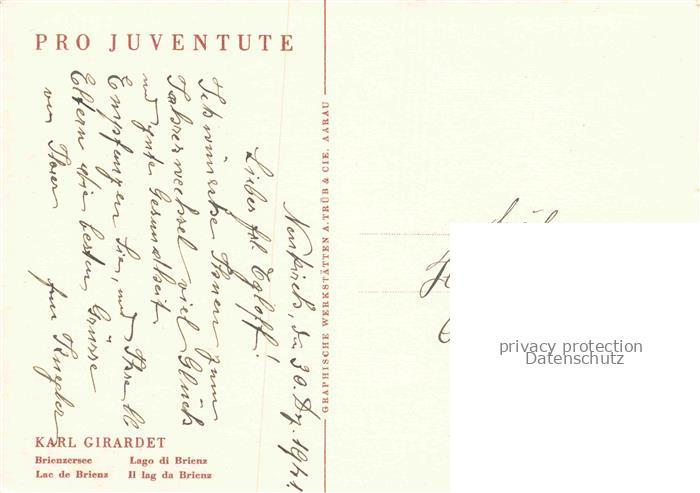 PRO JUVENTUTE
Neukirch, den 30. Dez. 1941.
Liebes Frl. Egloff!
Ich wünsche Ihnen zum
Jahreswechsel viel Glück
und gute Gesundheit.
Empfangen Sie, und Ihre lb.
Eltern die besten Grüsse
von Ihrer
KARL GIRARDET
Brienzersee Lago di Brienz
Lac de Brienz Il lag da Brienz
GRAPHISCHE WERKSTÄTTEN A. TRÜB & CIE. AARAU
privacy protection
Datenschutz